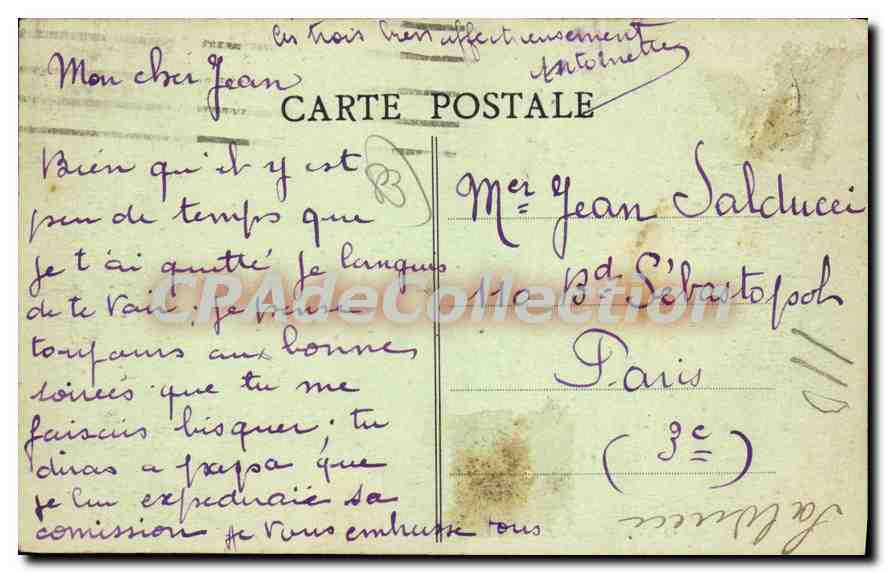 Mon cher Jean
CARTE POSTALE
Bien qu'il y est
peu de temps que
je t'ai quitté je languis
de te voir, je pense
toujours aux bonnes
soirées que tu me
faisais bisquer. tu
diras a papa que
je lui expediraie sa
comission je vous embrasse tous
les trois bien affectueusement
Antoinette
Mer Jean Salducci
110 Bd Sébastopol
Paris
(3e)
110
Salducci
CPAdeCollection